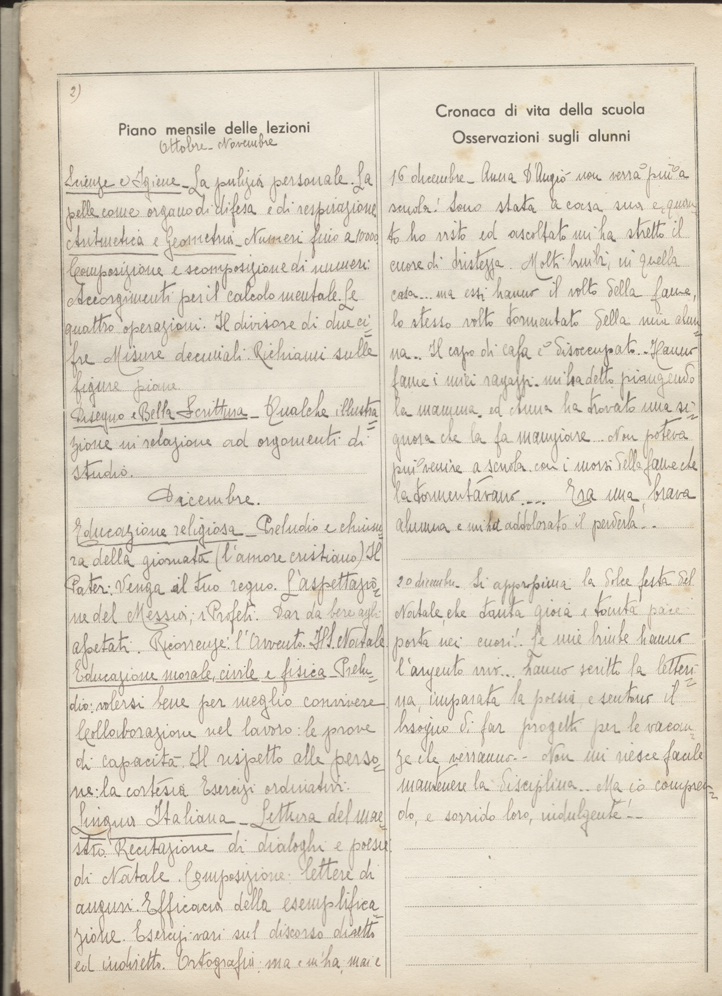 2)
Piano mensile delle lezioni
Ottobre - Novembre
Scienze e Igiene - La pulizia personale. La
pelle come organo di difesa e di respirazione
Aritmetica e Geometria - Numeri fino a 10000
Composizione e scomposizione di numeri.
Accorgimenti per il calcolo mentale. Le
quattro operazioni. Il divisore di due ci=
fre Misure decimali. Richiami sulle
figure piane.
Disegno e Bella Scrittura - Qualche illustra=
zione in relazione ad argomenti di
studio.
Dicembre.
Educazione religiosa - Preludio e chiusu=
ra della giornata (l'amore cristiano) Il
Pater: Venga il tuo regno. L'aspettazio=
ne del Messia; i Profeti. Dar da bere agli
assetati. Ricorrenze: l'Avvento. Il S. Natale
Educazione morale, civile e fisica - Prelu=
dio: volersi bene per meglio convivere
Collaborazione nel lavoro: le prove
di capacità. Il rispetto alle perso=
ne: la cortesia Esercizi ordinativi.
Lingua Italiana - Lettura del mae=
stro. Recitazione di dialoghi e poesie
di Natale. Composizione: lettere di
auguri. Efficacia della esemplifica=
zione. Esercizi vari sul discorso diretto
ed indiretto. Ortografia: ma e m'ha, mai e
Cronaca di vita della scuola
Osservazioni sugli alunni
16 dicembre - Anna D'Angiò non verrà più a
scuola! Sono stata a casa sua e quan=
to ho visto ed ascoltato mi ha stretto il
cuore di tristezza. Molti bimbi, in quella
casa... ma essi hanno il volto della fame,
lo stesso volto tormentato della mia alun=
na... Il capo di casa è disoccupato... Hanno
fame i miei ragazzi.. mi ha detto piangendo
la mamma.. ed Anna ha trovato una si=
gnora che la fa mangiare... Non poteva
più venire a scuola con i morsi della fame che
la tormentavano.... Era una brava
alunna e mi ha addolorato il perderla!..
20 dicembre Si approssima la dolce festa del
Natale che tanta gioia e tanta pace
porta nei cuori!. Le mie bimbe hanno
l'argento vivo... hanno scritto la letteri=
na, imparata la poesia e sentono il
bisogno di far progetti per le vacan=
ze che verranno.. Non mi riesce facile
mantenere la disciplina... Ma io compren=
do, e sorrido loro, indulgente!..